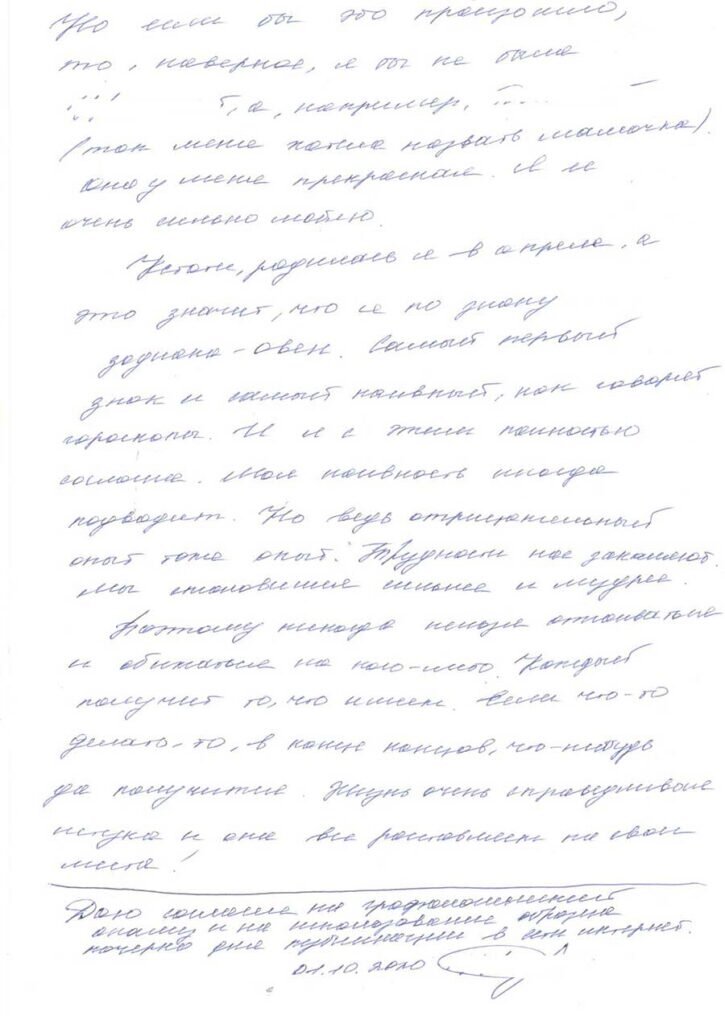 Но если бы это произошло,
то, наверное, я бы не была
, а, например,
(так меня хотела назвать мамочка).
Она у меня прекрасная. Я ее
очень сильно люблю.
Кстати, родилась я в апреле, а
это значит, что я по знаку
зодиака - овен. Самый первый
знак и самый наивный, как говорят
гороскопы. И я с этим полностью
согласна. Моя наивность иногда
подводит. Но ведь отрицательный
опыт тоже опыт. Трудности нас закаляют.
Мы становимся сильнее и мудрее.
Поэтому никогда нельзя отчаиваться
и обижаться на кого-либо. Каждый
получит то, что имеет. Если что-то
делать, то, в конце концов, что-нибудь
да получится. Жизнь очень справедливая
штука и она все расставляет на свои
места!
Даю согласие на графологический
анализ и на использование образца
почерка для публикации в сети интернет.
01.10.2020